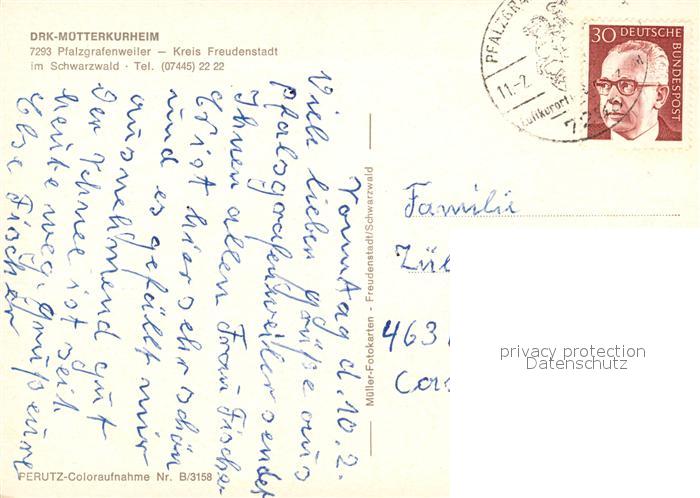 DRK-MÜTTERKURHEIM
7293 Pfalzgrafenweiler — Kreis Freudenstadt
im Schwarzwald · Tel. (07445) 22 22
Sonntag d. 10.2.
Viele liebe Grüße aus
Pfalzgrafenweiler sendet
Ihnen allen Frau Fischer
Es ist hier sehr schön
und es gefällt mir
ausnehmend gut
Der Schnee ist seit
heute weg. Gruß eure
Else Fischer
PERUTZ-Coloraufnahme Nr. B/3158
Müller-Fotokarten - Freudenstadt/Schwarzwald
PFALZGRA
11.-2.
Luftkurort
30 DEUTSCHE
BUNDESPOST
Familie
Zül
463
privacy protection
Datenschutz